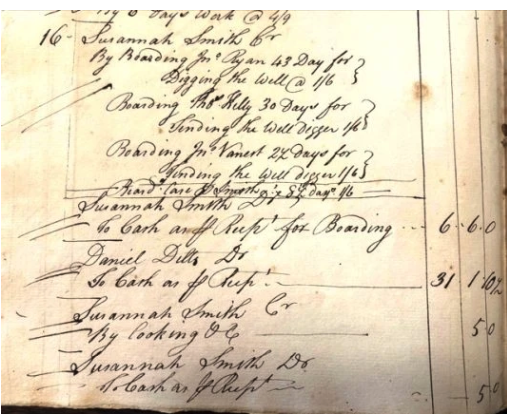 By 6 Days Work @ 4/9
16 - Susannah Smith Cr
By Boarding Jno Ryan 43 Day for
Digging the Well @ 1/6
Boarding Thos Kelly 30 Days for
Tending the Well Digger 1/6
Boarding Jno Vanest 27 Days for
Tending the Well digger 1/6
Case & Smith days 1/6
Susannah Smith Dr
To Cash as Recpt for Boarding -- 6.6.0
Daniel Dilts Dr
To Cash as Recpt 31 1.10½
Susannah Smith Cr
By Cooking &c 5 0
Susannah Smith Dr
To Cash as Recpt 5 0